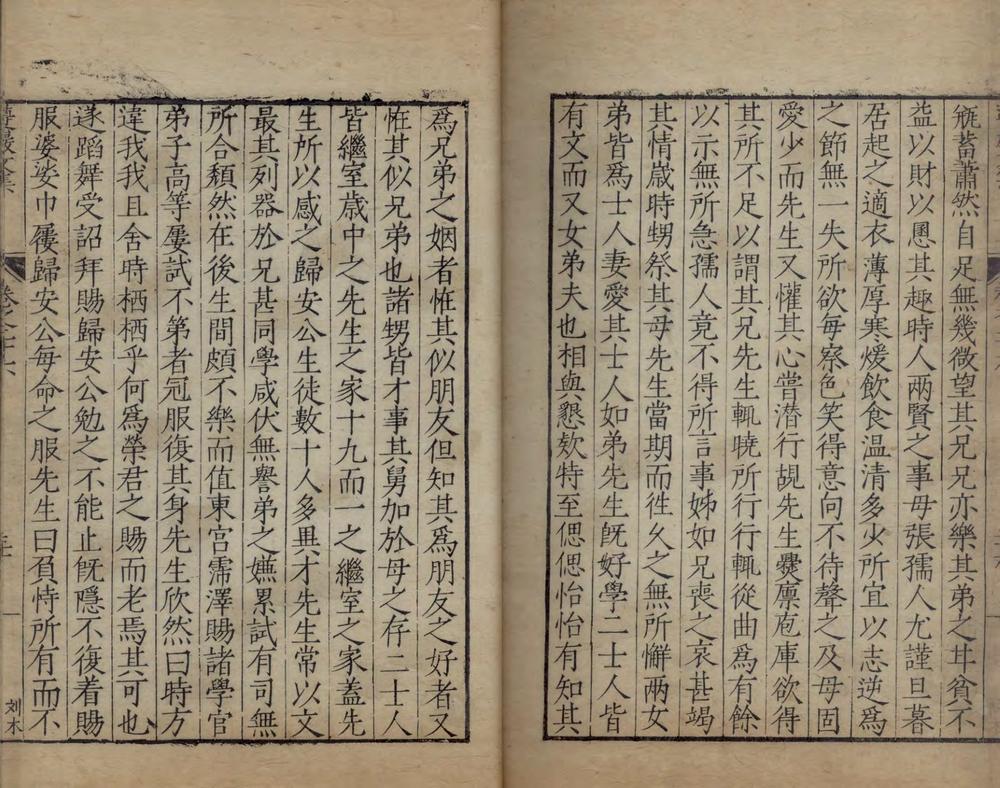 瓶蓄蕭然自足無幾微望其兄兄亦樂其弟之甘貧不
盗以財以慁其趣時人兩賢之事母張孺人尤謹旦暮
居起之適衣薄厚寒煖飲食温清多少所宜以志逆爲
之節無一失所欲每察色笑得意向不待聲之及母固
愛少而先生又懽其心嘗潜行覘先生爨廪庖庫欲得
其所不足以謂其兄先生輒曉所行行輒從曲爲有餘
以示無所急孺人竟不得所言事姊如兄喪之哀甚竭
其情歲時甥祭其母先生當期而徃久之無所懈兩女
弟皆爲士人妻愛其士人如弟先生旣好學二士人皆
有文而又女弟夫也相與懇欵特至偲偲怡怡有知其
爲兄弟之姻者恠其似朋友但知其爲朋友之好者又
恠其似兄弟也諸甥皆才事其舅加於母之存二士人
皆繼室歳中之先生之家十九而一之繼室之家蓋先
生所以感之歸安公生徒數十人多異才先生常以文
最其列器於兄甚同學咸伏無譽弟之嫌累試有司無
所合頽然在後生間頗不樂而值東宮霈澤賜諸學官
弟子高等屢試不第者冠服復其身先生欣然曰時方
違我我且舍時栖栖乎何爲榮君之賜而老焉其可也
遂蹈舞受詔拜賜歸安公勉之不能止旣隱不復着賜
服婆娑巾屨歸安公每命之服先生曰負恃所有而不
刘木